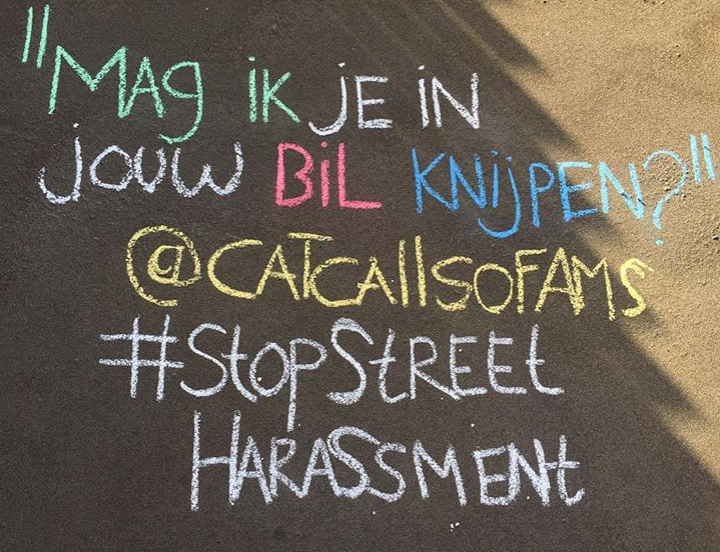 "MAG iK jE iN
jOUW BiL KNijPEN?"
@CATCAllSOFAMS
#StOPStREEt
HARASSMENt